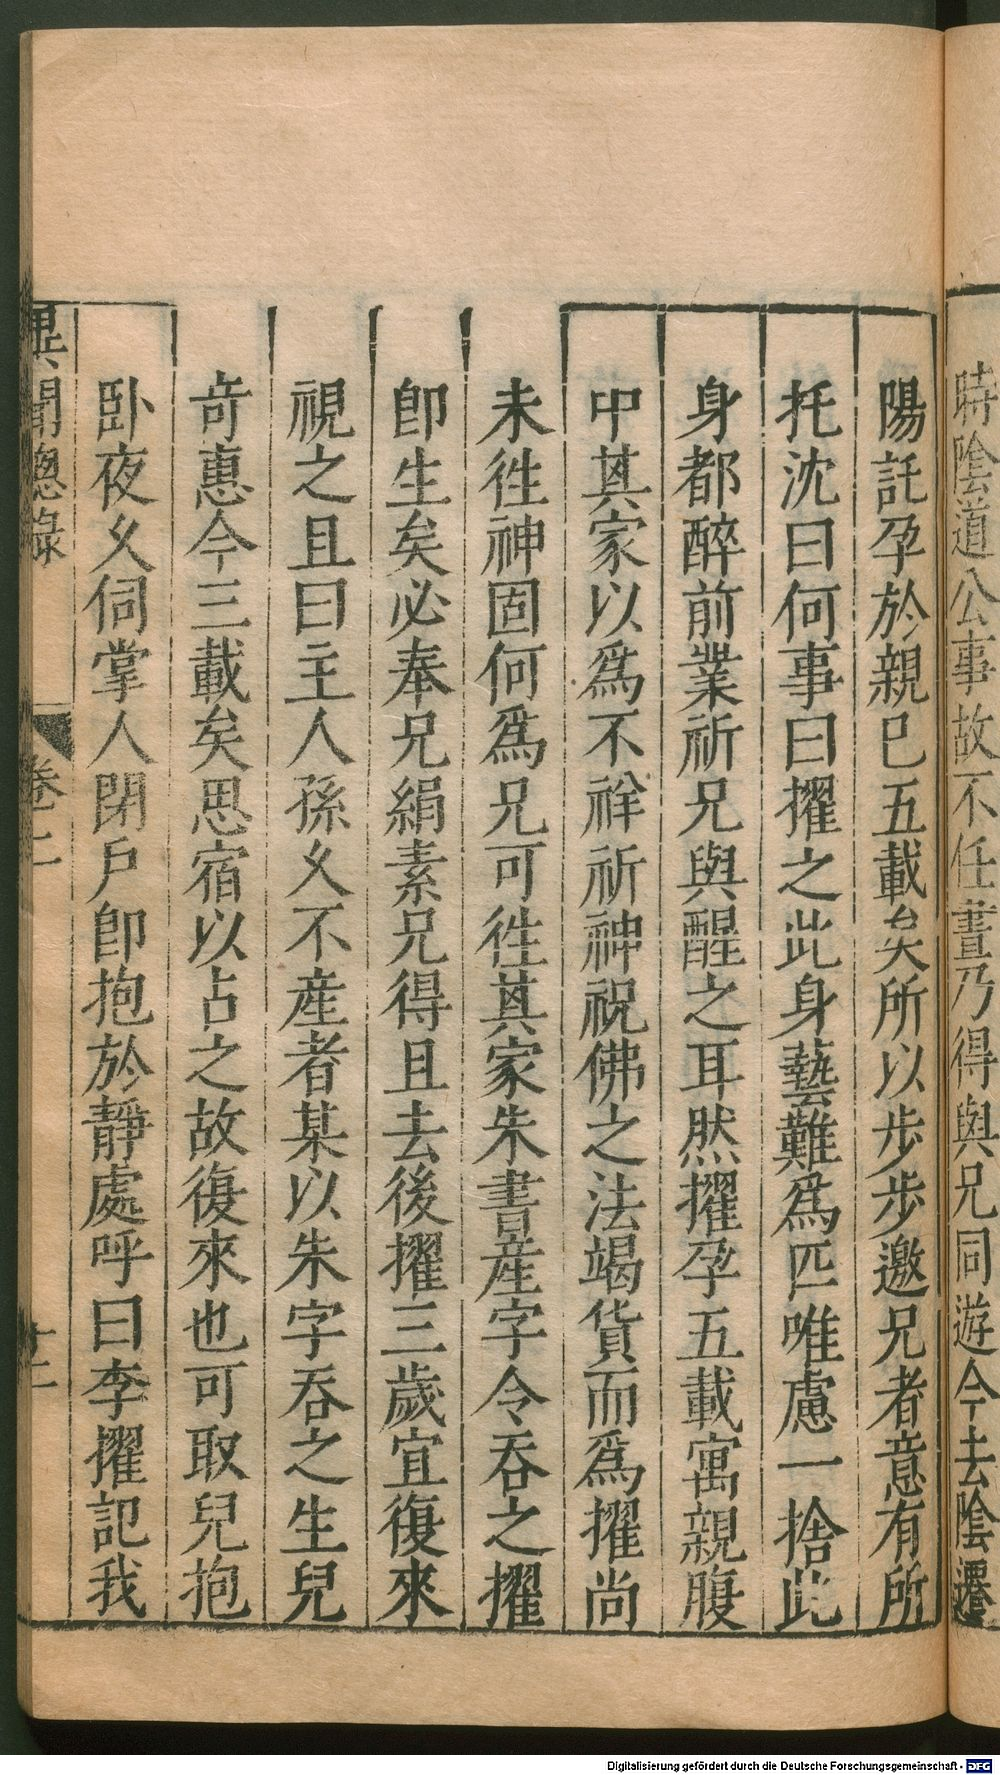 時陰道公事故不任晝乃得與兄同遊今去陰遷
陽託孕於親巳五載矣所以步步邀兄者意有所
托沈曰何事曰擢之此身藝難爲匹唯慮一捨此
身都醉前業祈兄與醒之耳然擢孕五載寓親腹
中其家以爲不祥祈神祝佛之法竭貨而爲擢尚
未徃神固何爲兄可徃其家朱書産字令吞之擢
卽生矣必奉兄絹素兄得且去後擢三歲宜復來
視之且曰主人孫久不産者某以朱字吞之生兒
奇惠今三載矣思宿以占之故復來也可取兒抱
卧夜久伺掌人閉戶卽抱於靜處呼曰李擢記我
異聞總錄
卷二
十二
Digitalisierung gefördert durch die Deutsche Forschungsgemeinschaft - DFG